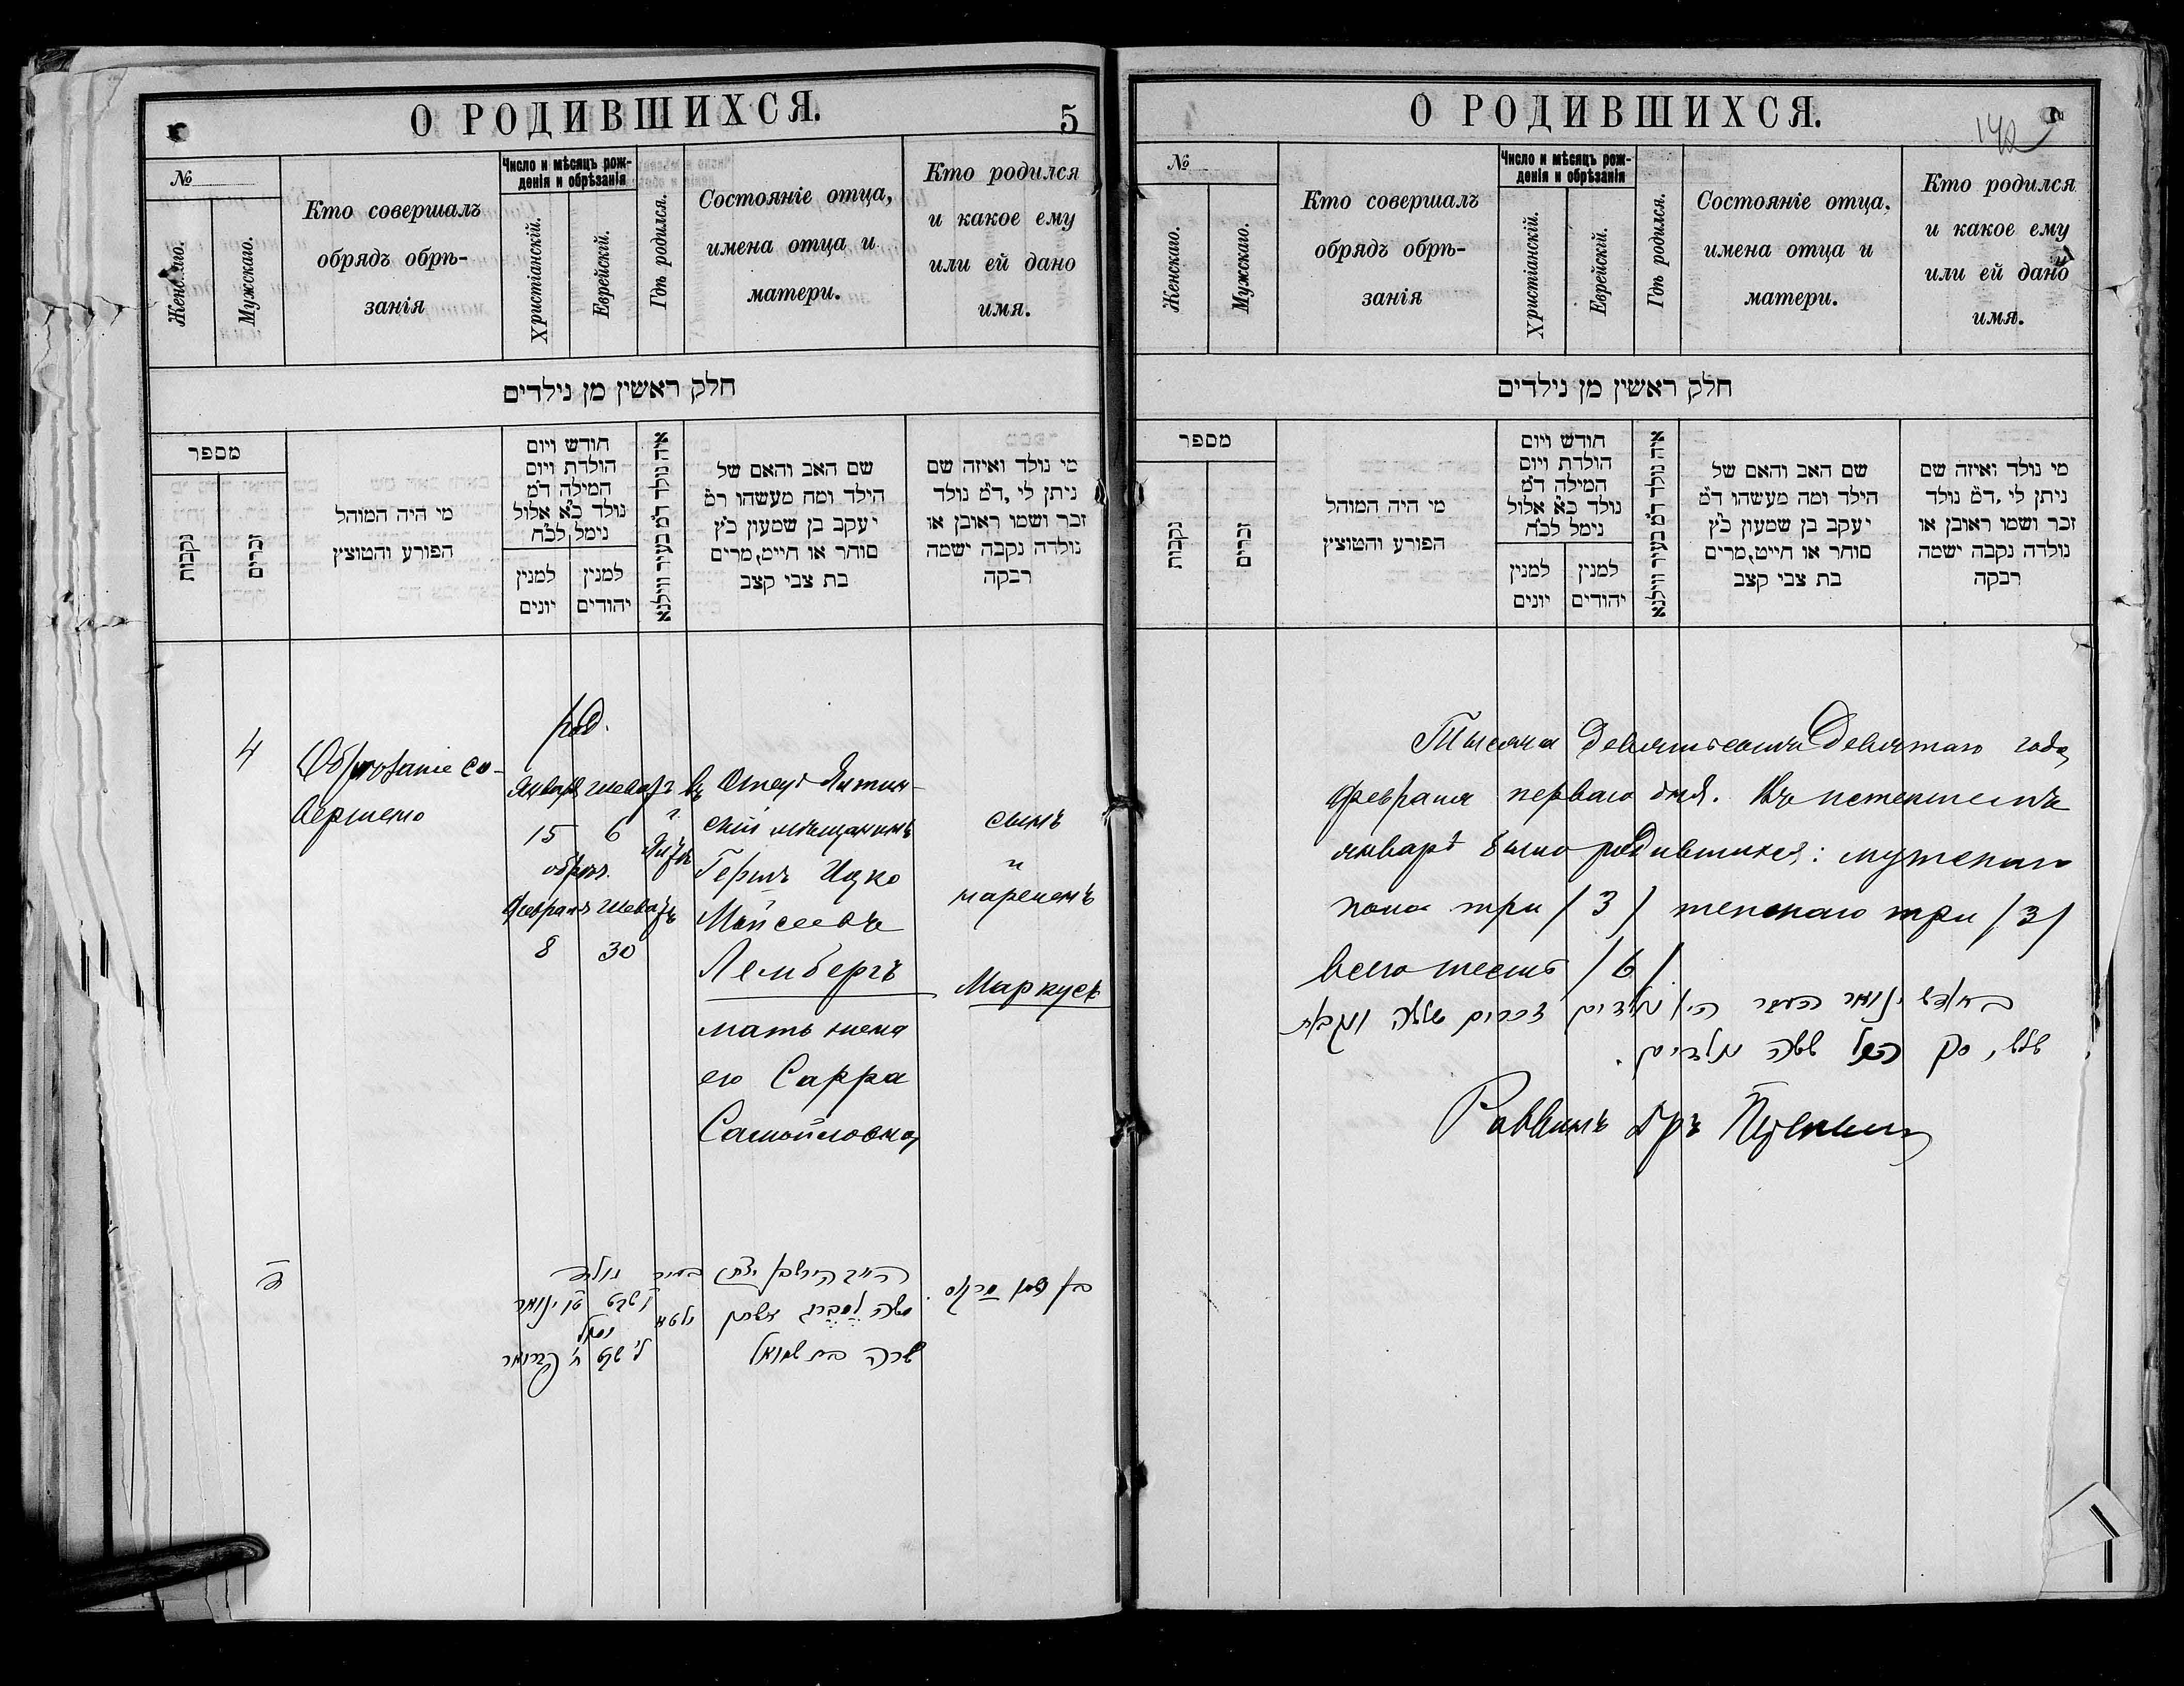 О РОДИВШИХСЯ.
5
№
Женскаго.
Мужскаго.
Кто совершалъ
обрядъ обрѣ-
занія
Число и мѣсяцъ рож-
денія и обрѣзанія
Христіанскій.
Еврейскій.
Гдѣ родился.
Состояніе отца,
имена отца и
матери.
Кто родился
и какое ему
или ей дано
имя.
חלק ראשין מן נילדים
מספר
נקבות
זכרים
מי היה המוהל
הפורע והמוצץ
חודש ויום
הולדת ויום
המילה ד״מ
נולד כ״א אלול
נימל לכ״ח
למנין
יונים
למנין
יהודים
איה נולד ד״מ בעיר ווילנא
שם האב והאם של
הילד ומה מעשהו ד״מ
יעקב בן שמעון כ״ץ
סוחר או חייט, מרים
בת צבי קצב
מי נולד ואיזה שם
ניתן לי, ד״מ נולד
זכר ושמו ראובן או
נולדה נקבה ישמה
רבקה
4
Обрѣзаніе со-
вершено
род.
Январ Шеватъ
15 6
обрѣз.
Февраля Шеватъ
8 30
въ
г.
Отецъ
скій мѣщанинъ
Гершъ Ицко
Мойсеевъ
Лембергъ
мать жена
его Сарра
Самойловна
сынъ
и
нареченъ
Маркусъ
שרה בת שמואל
О РОДИВШИХСЯ.
142
№
Женскаго.
Мужскаго.
Кто совершалъ
обрядъ обрѣ-
занія
Число и мѣсяцъ рож-
денія и обрѣзанія
Христіанскій.
Еврейскій.
Гдѣ родился.
Состояніе отца,
имена отца и
матери.
Кто родился
и какое ему
или ей дано
имя.
חלק ראשין מן נילדים
מספר
נקבות
זכרים
מי היה המוהל
הפורע והמוצץ
חודש ויום
הולדת ויום
המילה ד״מ
נולד כ״א אלול
נימל לכ״ח
למנין
יונים
למנין
יהודים
איה נולד ד״מ בעיר ווילנא
שם האב והאם של
הילד ומה מעשהו ד״מ
יעקב בן שמעון כ״ץ
סוחר או חייט, מרים
בת צבי קצב
מי נולד ואיזה שם
ניתן לי, ד״מ נולד
זכר ושמו ראובן או
נולדה נקבה ישמה
רבקה
Тысяча девятьсотъ девятаго года
февраля перваго дня. Въ истекшемъ
январѣ было родившихся: мужскаго
пола три / 3 / женскаго три / 3 /
всего шесть / 6 /
בחודש ינואר העבר היו נולדים זכרים שלשה ונקבות
שלש, סך הכל ששה נולדים.
Раввинъ Др